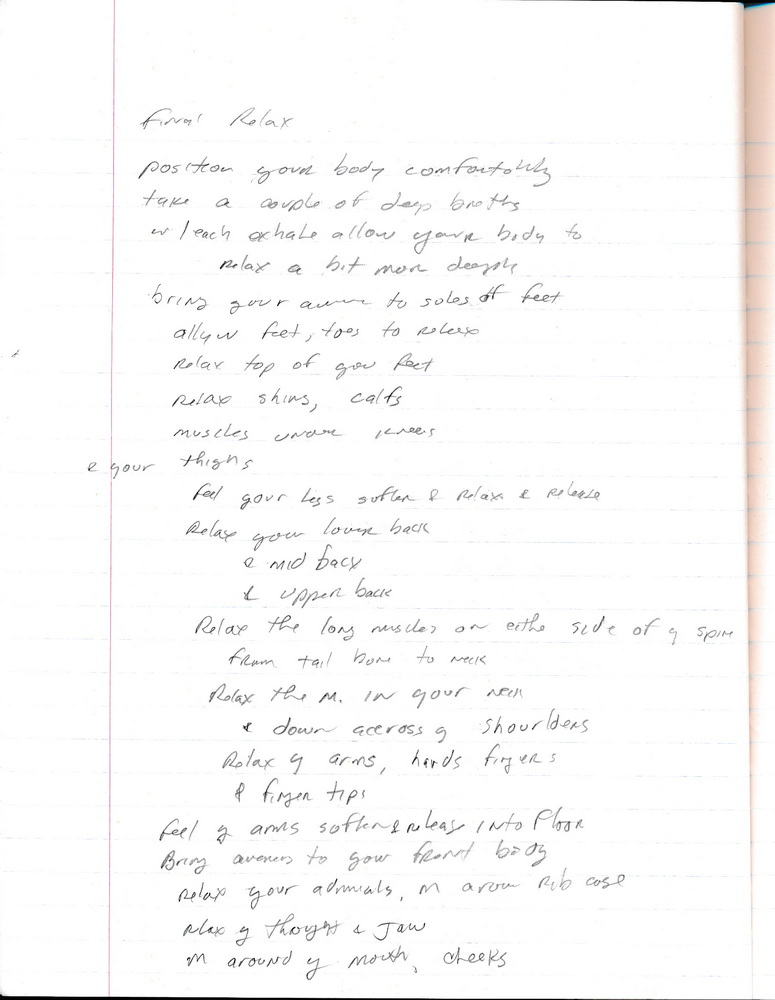 Final Relax
position your body comfortably
take a couple of deep breths
w/each exhale allow your body to
relax a bit more deeply
bring your aware to soles of feet
allow feet, toes to release
relax top of your feet
relax shins, calfs
muscles under knees
& your thighs
feel your legs soften & relax & release
Relax your lower back
& mid back
& upper back
Relax the long muscles on eithe side of y spine
from tail bone to neck
Relax the m. in your neck
& down aceross y shourlders
Relax y arms, hands fingers
& finger tips
Feel y arms soften & release into floor
Bring awenes to your front body
Relax your, m aroun rib cage
relax y & Jaw
m around y mouth, cheeks